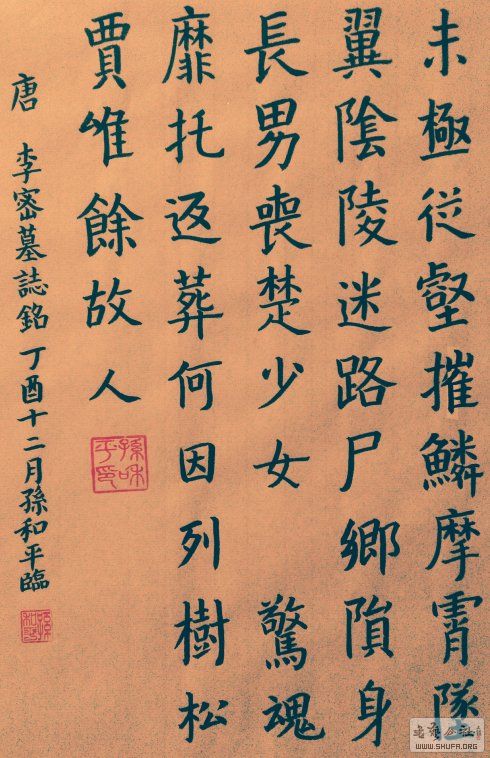 未極從壑摧鱗摩霄墜
翼陰陵迷路尸鄉隕身
長男喪楚少女 驚魂
靡托返葬何因列樹松
賈唯餘故人
孫和平印
唐 李密墓誌銘丁酉十二月孫和平臨
WWW.SHUFA.ORG